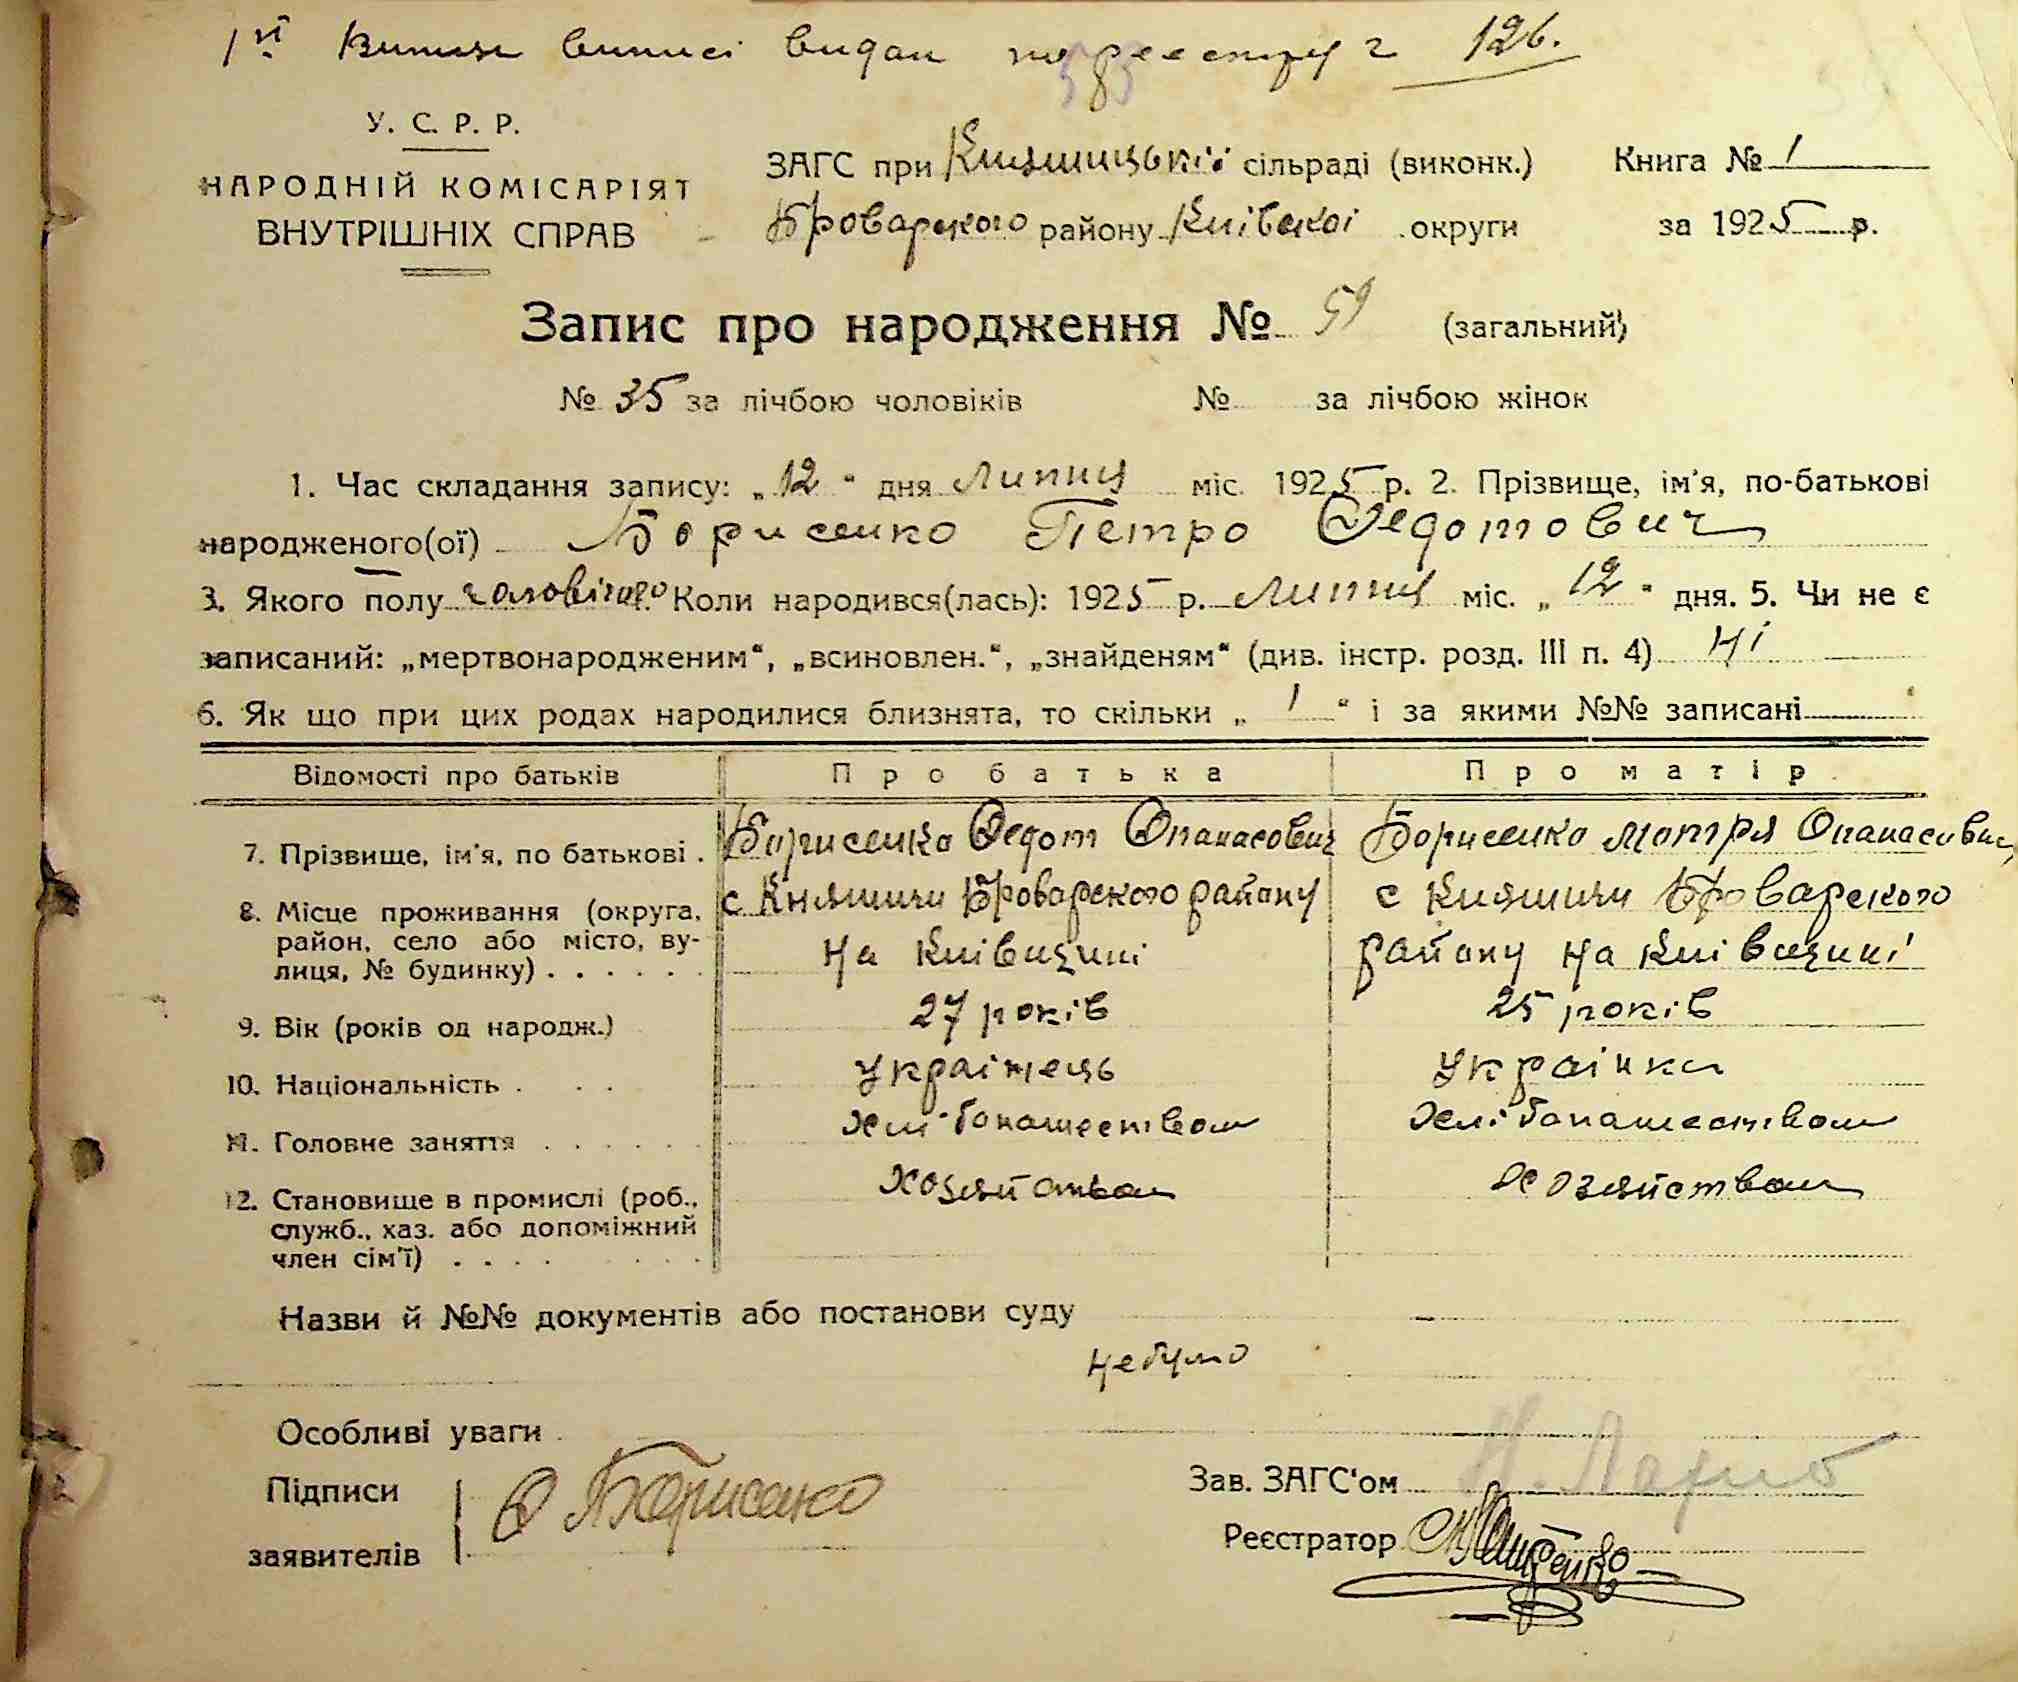 1й Випис виписі видан по реєстру г 126.
У. С. Р. Р.
НАРОДНІЙ КОМІСАРІЯТ
ВНУТРІШНІХ СПРАВ
ЗАГС при Княжицькій сільраді (виконк.) Книга № 1
Броварского району Київскоі округи за 1925 р.
Запис про народження № 59 (загальний)
№ 35 за лічбою чоловіків № за лічбою жінок
1. Час складання запису: „12“ дня Липня міс. 1925 р. 2. Прізвище, ім'я, по-батькові
народженого(ої) Борисенко Петро Федотович
3. Якого полу чоловічого Коли народився(лась): 1925 р. Липня міс. „12“ дня. 5. Чи не є
записаний: „мертвонародженим“, „всиновлен.“, „знайденям“ (див. інстр. розд. III п. 4) Ні
6. Як що при цих родах народилися близнята, то скільки „1“ і за якими №№ записані
Відомості про батьків Про батька Про матір
7. Прізвище, ім'я, по батькові . Борисенко Федот Опанасович Борисенко Мотря Опанасовна
8. Місце проживання (округа, с Княжичи Броварского району с Княжичи Броварского
район, село або місто, ву- на Київщині району на Київщині
лиця, № будинку) . . . . . .
9. Вік (років од народж.) 27 років 25 років
10. Національність . . . українець українка
11. Головне заняття . . . . . . Хлібопашеством Хлібопашеством
12. Становище в промислі (роб., Хозяйством Хозяйством
служб., хаз. або допоміжний
член сім'ї) . . . .
Назви й №№ документів або постанови суду
не було
Особливі уваги
Підписи
заявителів
Ф Борисенко
Зав. ЗАГС'ом
Реєстратор